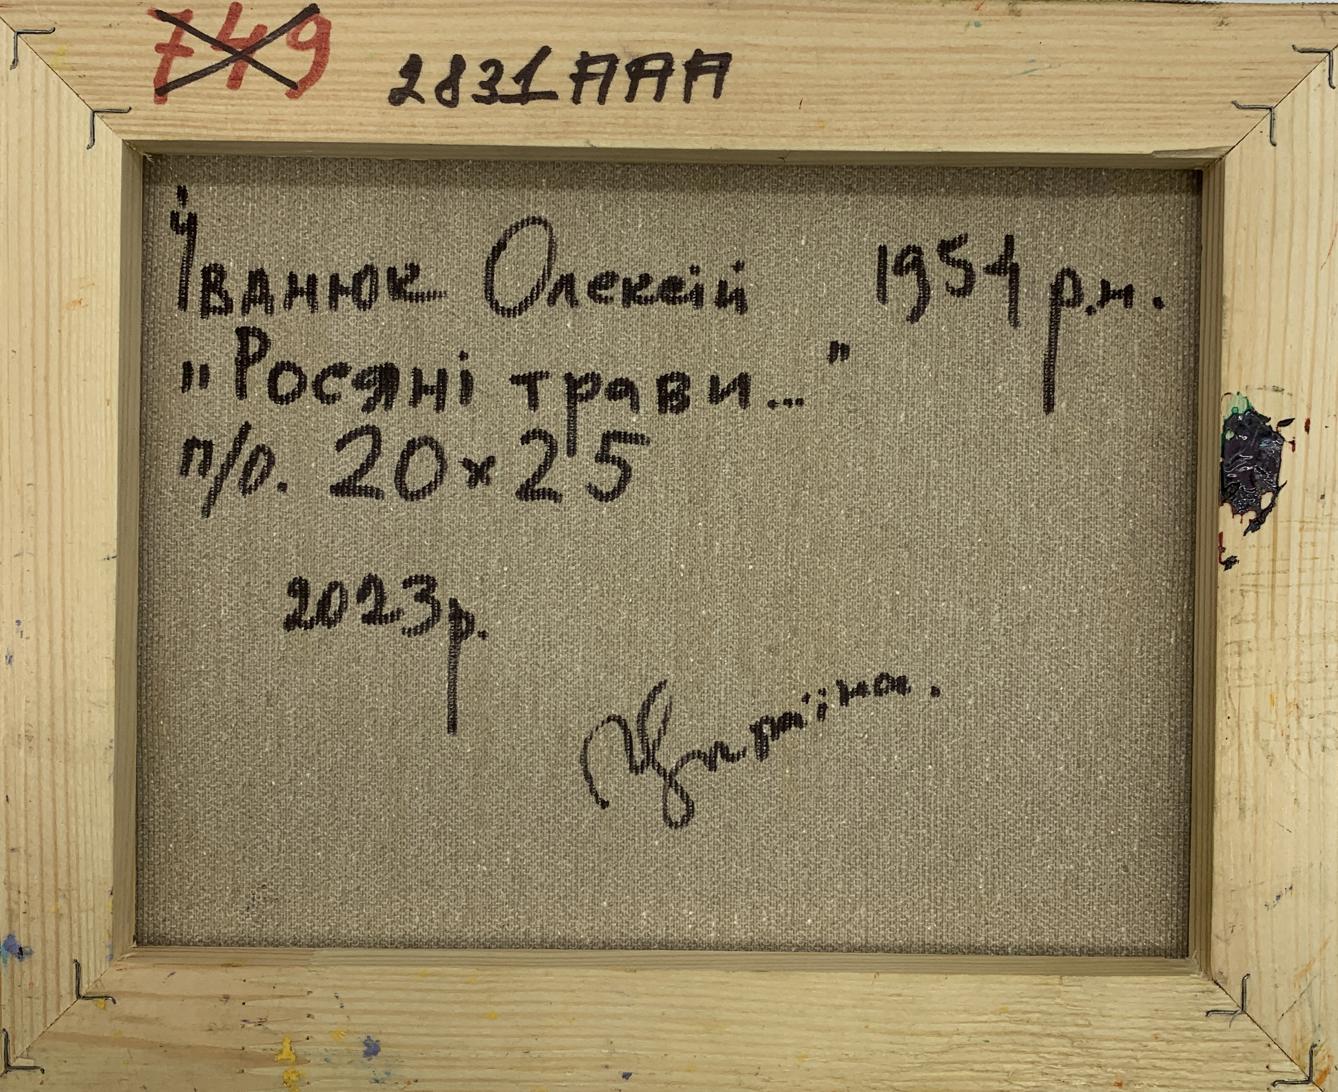 749
2831ААА
Іванюк Олексій 1954 р.н.
„Росяні трави..."
п/о. 20×25
2023р.